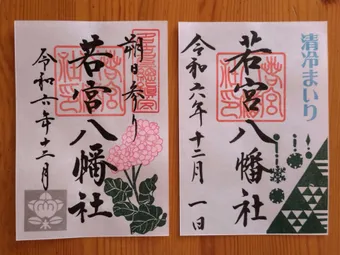 朔日参り
若宮八幡社
令和六年十一月
清冷まいり
若宮八幡社
令和六年十二月一日